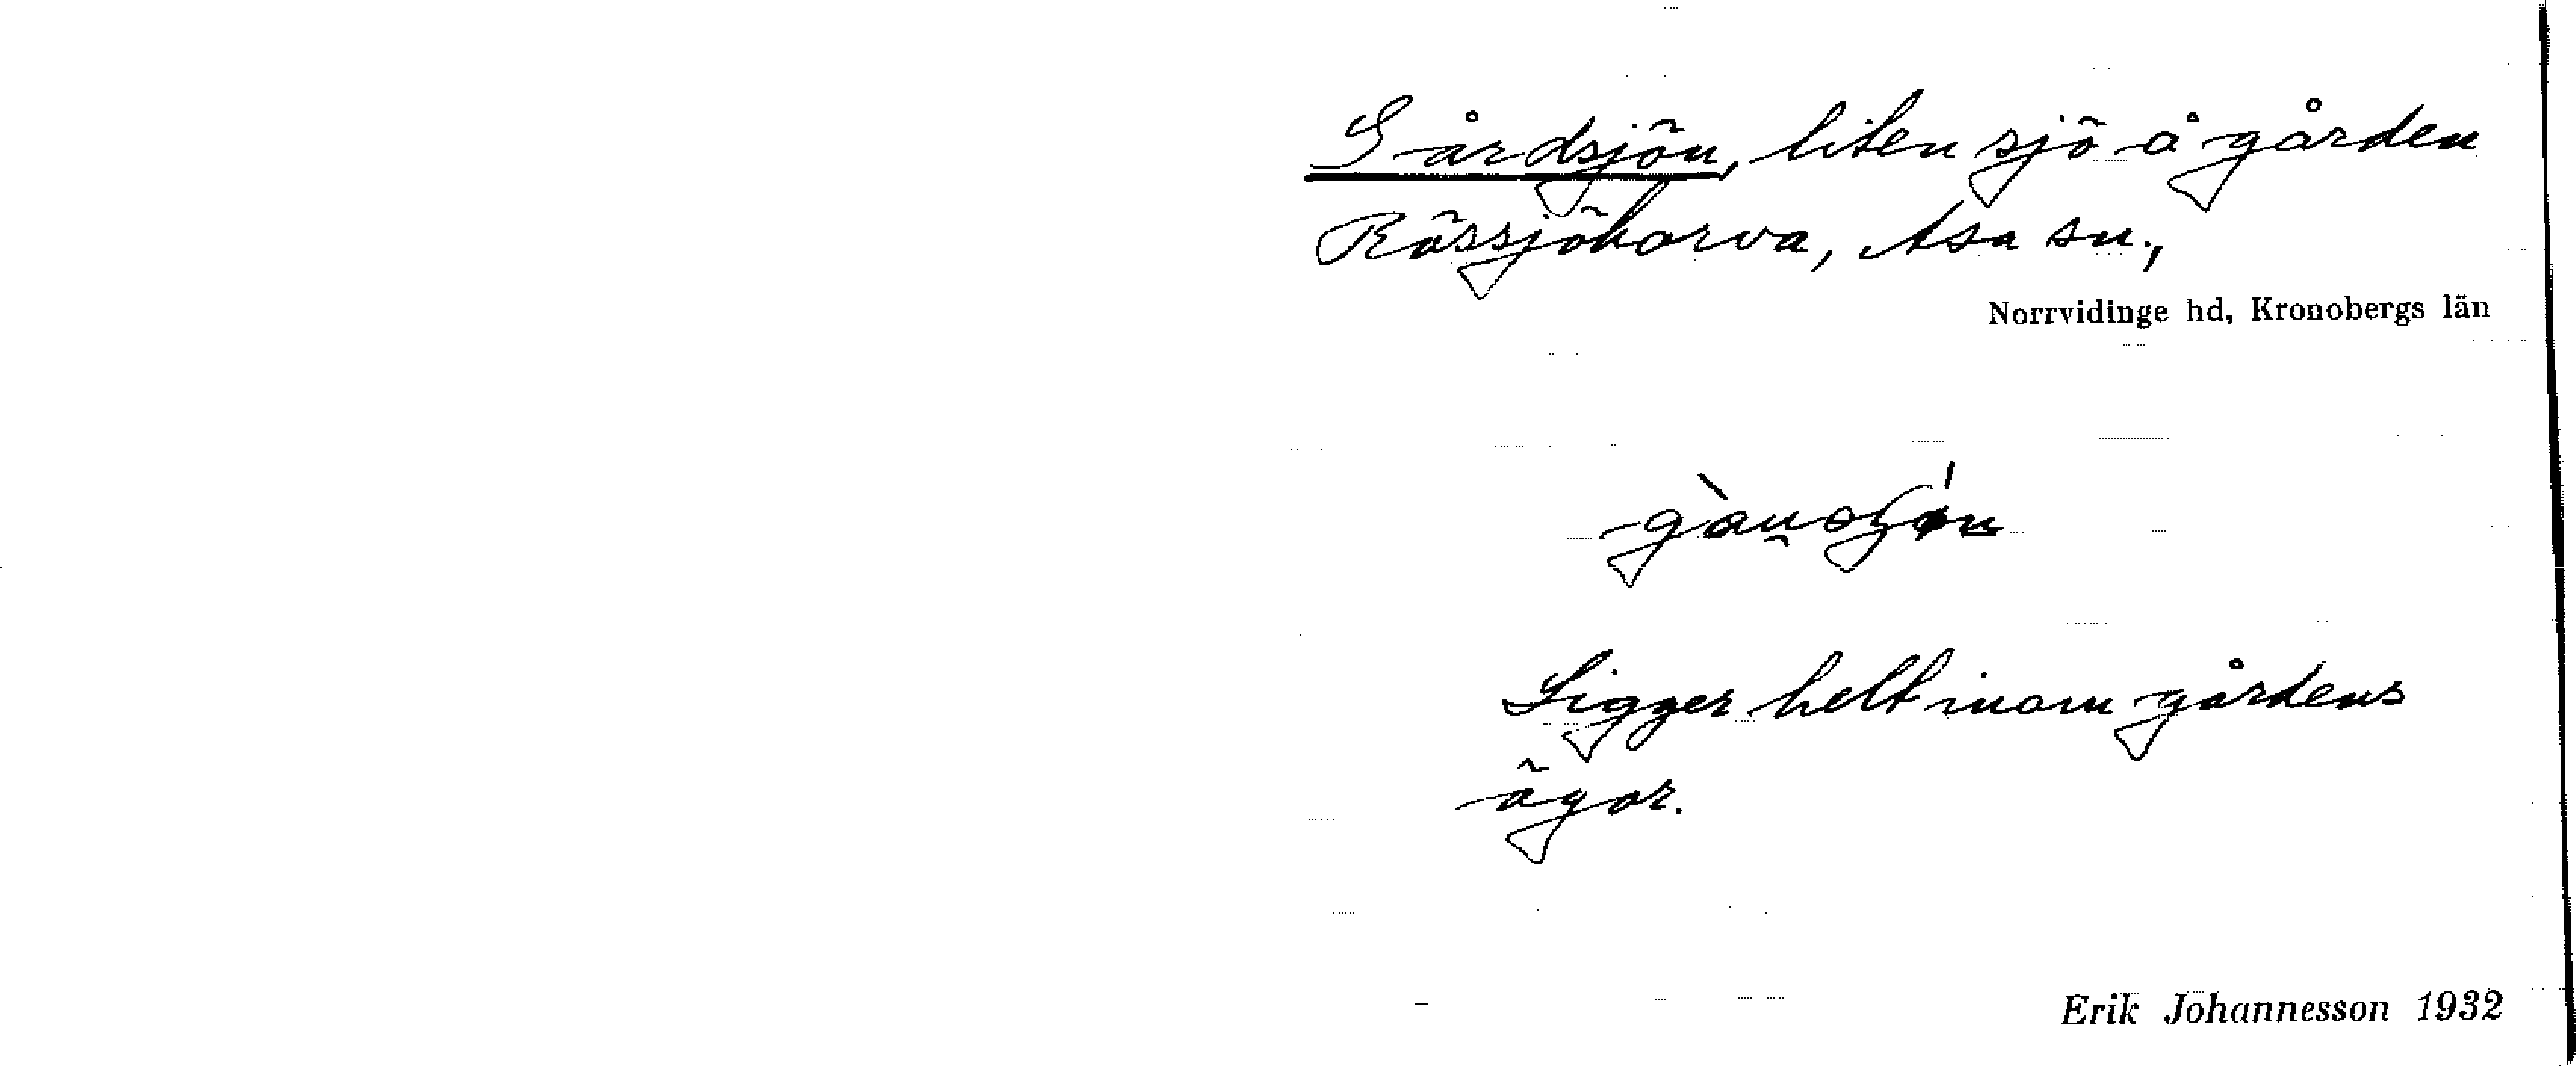 Gårdsjön, liten sjö å gården
Rössjöhorva, Asa sn.,
Norrvidinge hd, Kronobergs län
Ligger helt inom gårdens
ägor.
Erik Johannesson 1932